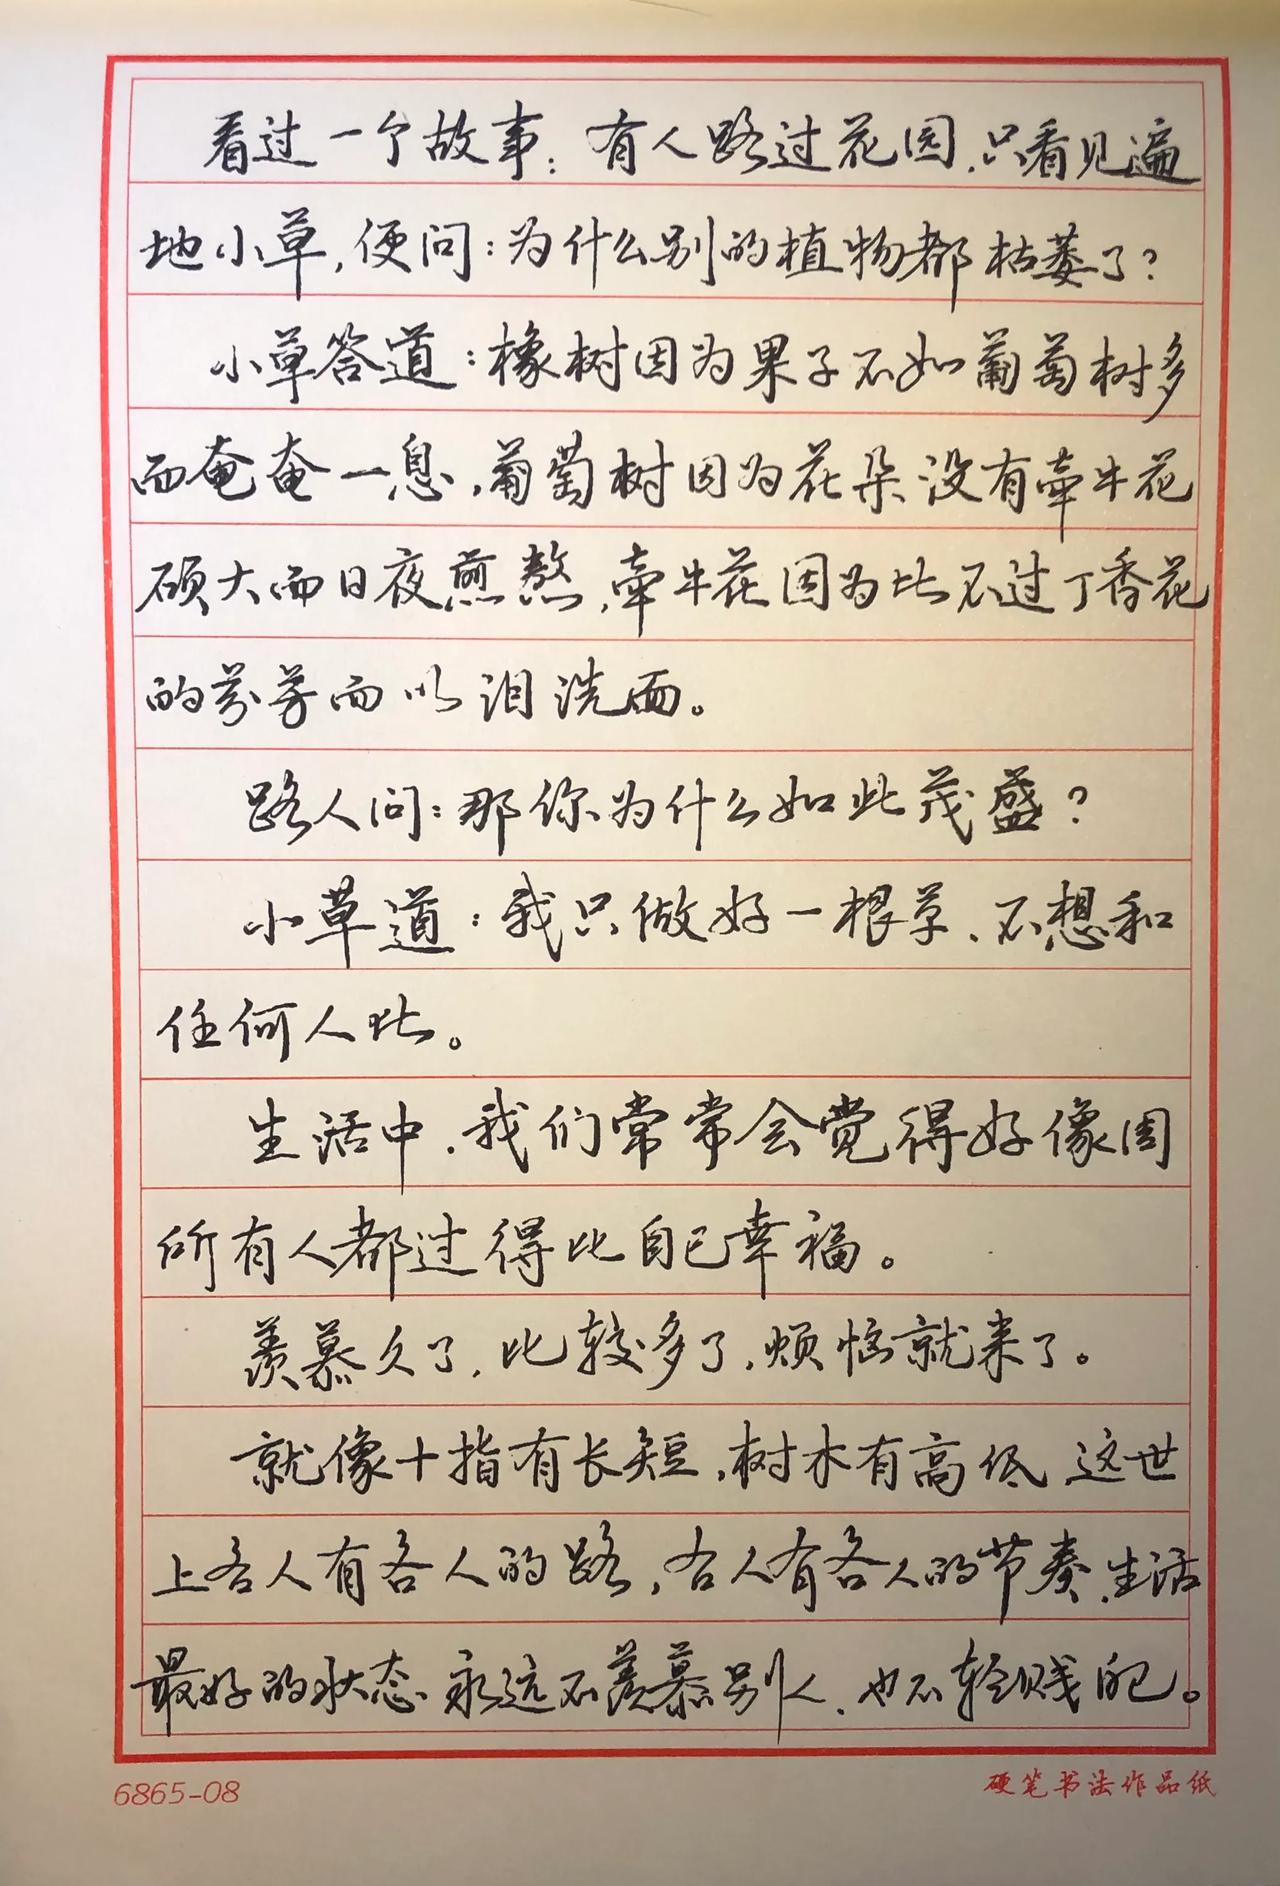 看过一个故事：有人路过花园，只看见遍
地小草，便问：为什么别的植物都枯萎了？
小草答道：橡树因为果子不如葡萄树多
而奄奄一息，葡萄树因为花朵没有牵牛花
硕大而日夜煎熬，牵牛花因为比不过丁香花
的芬芳而以泪洗面。
路人问：那你为什么如此茂盛？
小草道：我只做好一根草、不想和
任何人比。
生活中，我们常常会觉得好像周
所有人都过得比自已幸福。
羡慕久了，比较多了，烦恼就来了。
就像十指有长短，树木有高低，这世
上各人有各人的路，各人有各人的节奏，生活
最好的状态，永远不羡慕别人，也不轻贱自己。
6865-08
硬笔书法作品纸